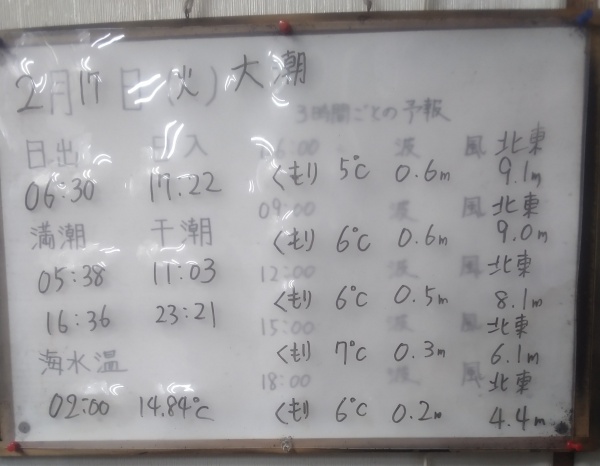 2月17日(火) 大潮
3時間ごとの予報
日出 日入
06:30 17:22
満潮 干潮
05:38 11:03
16:36 23:21
海水温
02:00 14.84℃
06:00 波 風 北東
くもり 5℃ 0.6m 9.1m
09:00 波 風 北東
くもり 6℃ 0.6m 9.0m
12:00 波 風 北東
くもり 6℃ 0.5m 8.1m
15:00 波 風 北東
くもり 7℃ 0.3m 6.1m
18:00 波 風 北東
くもり 6℃ 0.2m 4.4m